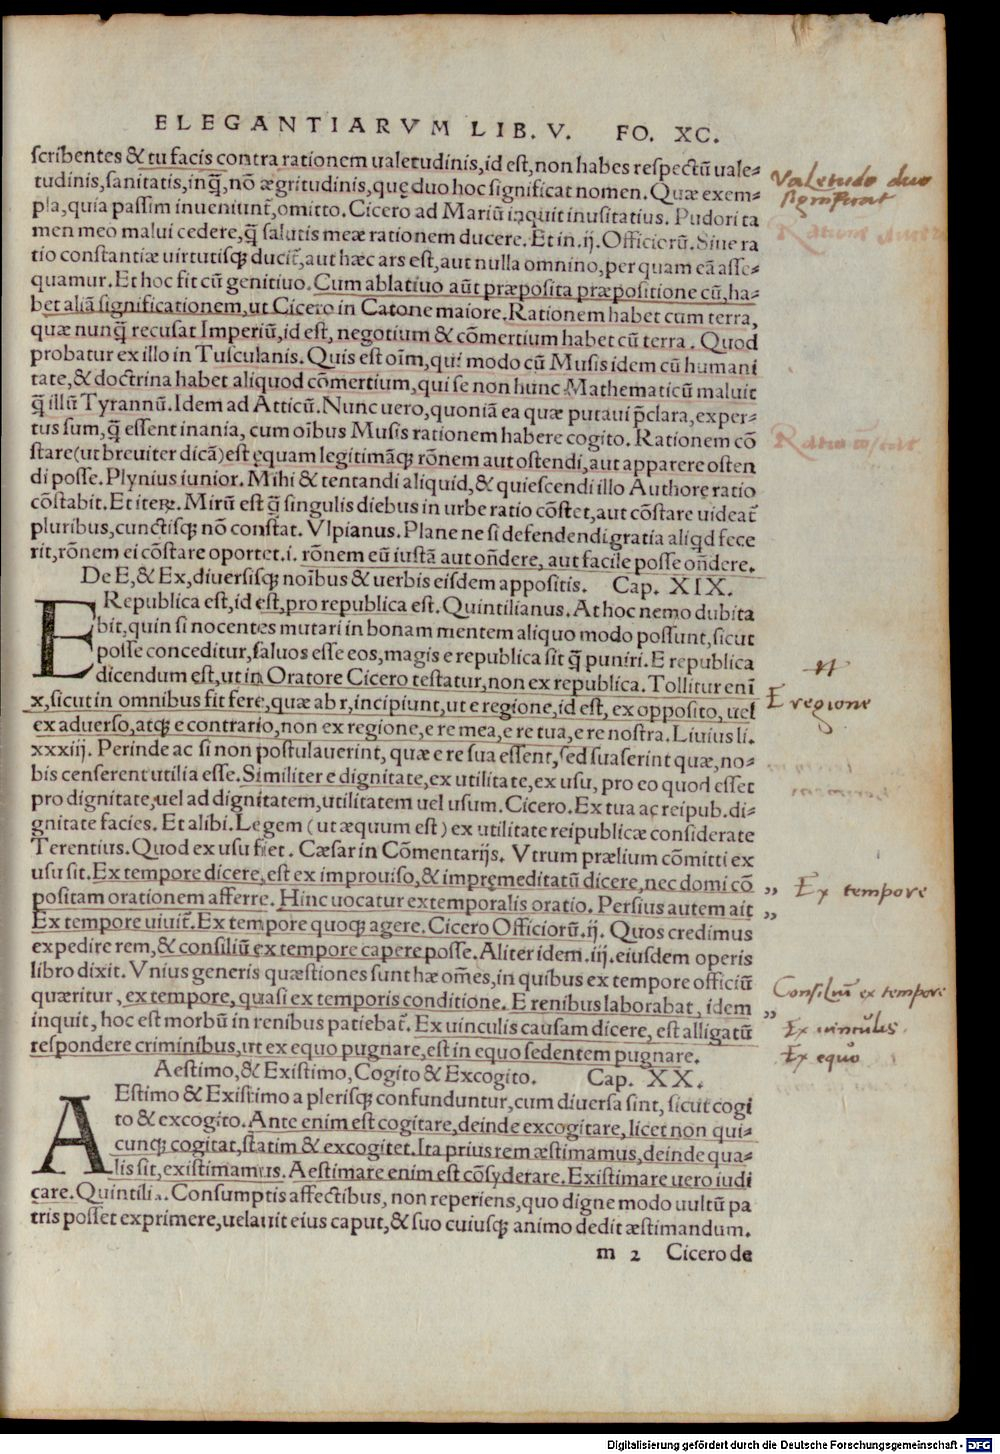 ELEGANTIARVM LIB. V. FO. XC.
scribentes & tu facis contra rationem ualetudinis, id est, non habes respectũ uale-
tudinis, sanitatis, inq̃, nõ ægritudinis, quę duo hoc significat nomen. Quæ exem-
pla, quia passim inueniunt̃, omitto. Cicero ad Mariũ inquit inusitatius. Pudori ta
men meo malui cedere, q̃ salutis meæ rationem ducere. Et in .ij. Officiorũ. Siue ra
tio constantiæ uirtutisq; ducit̃, aut hæc ars est, aut nulla omnino, per quam eã asse-
quamur. Et hoc fit cũ genitiuo. Cum ablatiuo aũt præposita præpositione cũ, ha-
bet aliã significationem, ut Cicero in Catone maiore. Rationem habet cum terra,
quæ nunq̃ recusat Imperiũ, id est, negotium & cõmertium habet cũ terra. Quod
probatur ex illo in Tusculanis. Quis est oĩm, qui modo cũ Musis idem cũ humani
tate, & doctrina habet aliquod cõmertium, qui se non hunc Mathematicũ maluit
q̃ illũ Tyrannũ. Idem ad Atticũ. Nunc uero, quoniã ea quæ putaui p̃clara, exper-
tus sum, q̃ essent inania, cum oĩbus Musis rationem habere cogito. Rationem cõ
stare (ut breuiter dicã) est ęquam legitimãq; rõnem aut ostendi, aut apparere osten
di posse. Plynius iunior. Mihi & tentandi aliquid, & quiescendi illo Authore ratio
cõstabit. Et iterꝝ. Mirũ est q̃ singulis diebus in urbe ratio cõstet, aut cõstare uideat̃
pluribus, cunctisq; nõ constat. Vlpianus. Plane ne si defendendi gratia aliqd fece
rit, rõnem ei cõstare oportet .i. rõnem eũ iustã aut oñdere, aut facile posse oñdere.
De E, & Ex, diuersisq; noĩbus & uerbis eisdem appositis. Cap. XIX.
E Republica est, id est, pro republica est. Quintilianus. At hoc nemo dubita
bit, quin si nocentes mutari in bonam mentem aliquo modo possunt, sicut
posse conceditur, saluos esse eos, magis e republica sit q̃ puniri. E republica
dicendum est, ut in Oratore Cicero testatur, non ex republica. Tollitur enĩ
x, sicut in omnibus fit fere, quæ ab r, incipiunt, ut e regione, id est, ex opposito, uel
ex aduerso, atq; e contrario, non ex regione, e re mea, e re tua, e re nostra. Liuius li.
xxxiij. Perinde ac si non postulauerint, quæ e re sua essent, sed suaserint quæ, no-
bis censerent utilia esse. Similiter e dignitate, ex utilitate, ex usu, pro eo quod esset
pro dignitate, uel ad dignitatem, utilitatem uel usum. Cicero. Ex tua ac reipub. di-
gnitate facies. Et alibi. Legem (ut æquum est) ex utilitate reipublicæ considerate
Terentius. Quod ex usu fiet. Cæsar in Cõmentarijs. Vtrum prælium cõmitti ex
usu sit. Ex tempore dicere, est ex improuiso, & impręmeditatũ dicere, nec domi cõ
positam orationem afferre. Hinc uocatur extemporalis oratio. Persius autem ait
Ex tempore uiuit̃. Ex tempore quoq; agere. Cicero Officiorũ .ij. Quos credimus
expedire rem, & consiliũ ex tempore capere posse. Aliter idem .iij. eiusdem operis
libro dixit. Vnius generis quæstiones sunt hæ om̃es, in quibus ex tempore officiũ
quæritur, ex tempore, quasi ex temporis conditione. E renibus laborabat, idem
inquit, hoc est morbũ in renibus patiebat̃. Ex uinculis causam dicere, est alligatũ
respondere criminibus, ut ex equo pugnare, est in equo sedentem pugnare.
Aestimo, & Existimo, Cogito & Excogito. Cap. XX.
AEstimo & Existimo a plerisq; confunduntur, cum diuersa sint, sicut cogi
to & excogito. Ante enim est cogitare, deinde excogitare, licet non qui-
cunq; cogitat, statim & excogitet. Ita prius rem æstimamus, deinde qua-
lis sit, existimamus. Aestimare enim est cõsyderare. Existimare uero iudi
care. Quintilia. Consumptis affectibus, non reperiens, quo digne modo uultũ pa
tris posset exprimere, uelauit eius caput, & suo cuiusq; animo dedit æstimandum.
m 2 Cicero de
Valetudo duo
significat
Ratione ducere
Ratio cõstat
E regione
Ex tempore
Consiliũ ex tempore
Ex uinculis.
Ex equo
Digitalisierung gefördert durch die Deutsche Forschungsgemeinschaft - DFG